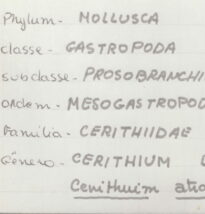 Phylum - MOLLUSCA
classe - GASTROPODA
subclasse - PROSOBRANCHI
ordem - MESOGASTROPOD
Família - CERITHIIDAE
Gênero - CERITHIUM
Cerithium